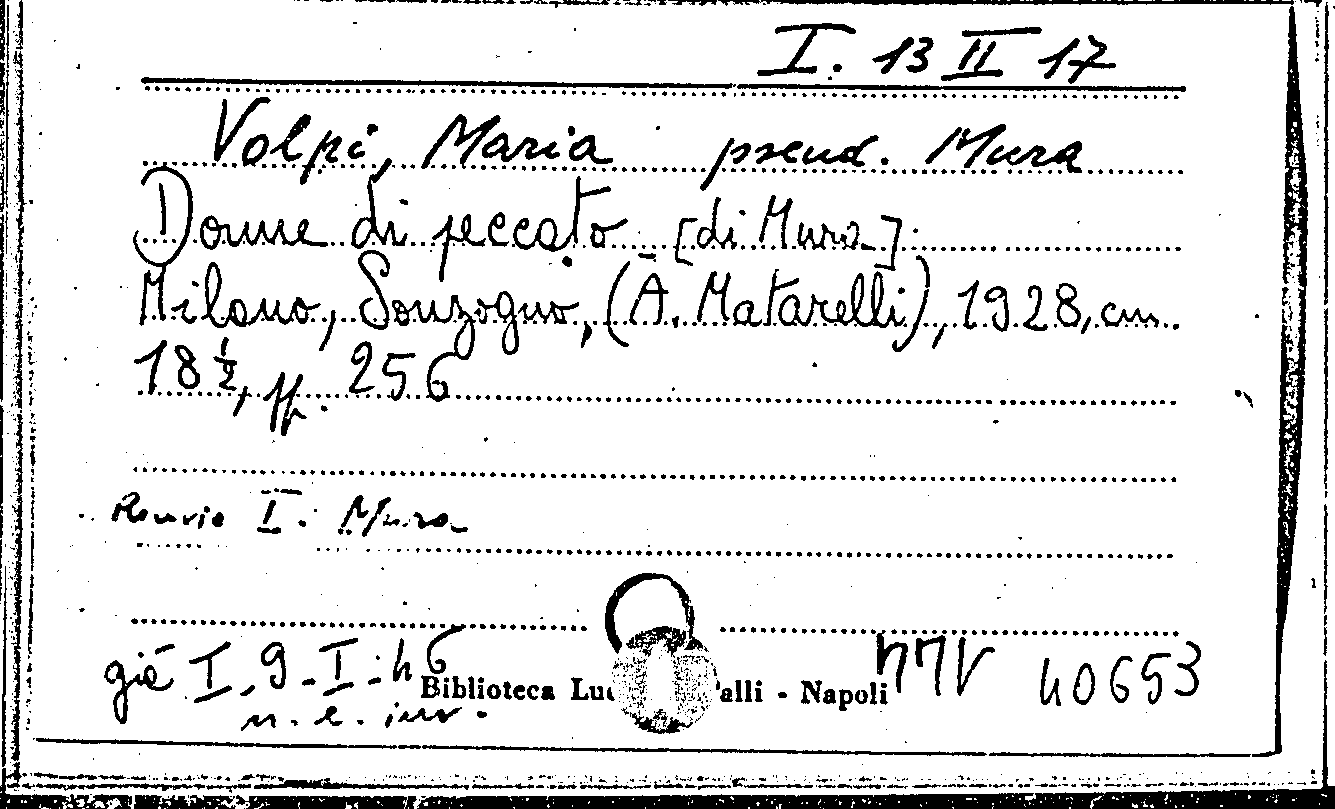 I. 13 II 17
Volpi, Maria pseud. Mura
Donne di peccato [di Mura]
Milano, Sonzogno, (A. Matarelli), 1928, cm.
18 ½, pp. 256
Rinvio I. Mura
già I. 9 - I - 46
Biblioteca Luc alli - Napoli
40653
n. e. inv.